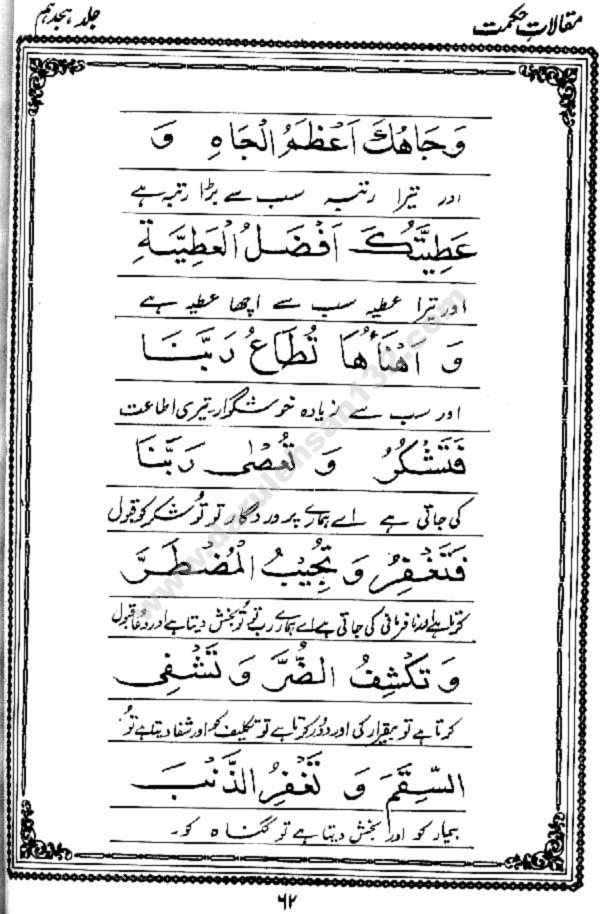 مقالاتِ حکمت
جلد ہیجدہم
وَجَاهُكَ اَعْظَمُ الْجَاهِ وَ
اور تیرا رتبہ سب سے بڑا رتبہ ہے
عَطِيَّتُكَ اَفْضَلُ الْعَطِيَّةِ
اور تیرا عطیہ سب سے اچھا عطیہ ہے
وَ اَهْنَأُهَا تُطَاعُ رَبَّنَا
اور سب سے زیادہ خوشگوار تیری اطاعت
فَتَشْكُرُ وَ تُعْصٰى رَبَّنَا
کی جاتی ہے اے ہمارے پروردگار تو تُو شکر کو قبول
فَتَغْفِرُ وَ تُجِيْبُ الْمُضْطَرَّ
کرتا ہے اور نافرمانی کی جاتی ہے اے ہمارے رب تو تُو بخش دیتا ہے اور دعا قبول
وَ تَكْشِفُ الضُّرَّ وَ تَشْفِى
کرتا ہے تو بیقرار کی اور دور کرتا ہے تو تکلیف کو اور شفا دیتا ہے تُو
السَّقِمَ وَ تَغْفِرُ الذَّنْبَ
بیمار کو اور بخش دیتا ہے تو گناہ کو۔
۶۲
www.darulehsan132.com